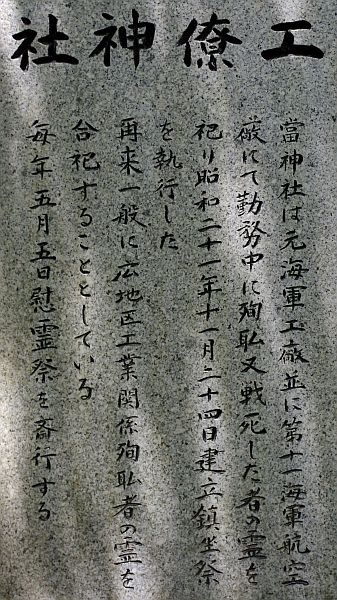 工僚神社
當神社は元海軍工廠並に第十一海軍航空
廠にて勤務中に殉職又戦死した者の霊を
祀り昭和二十一年十一月二十四日建立鎮坐祭
を執行した
再来一般に広地区工業関係殉職者の霊を
合祀することとしている
毎年五月五日慰霊祭を斎行する